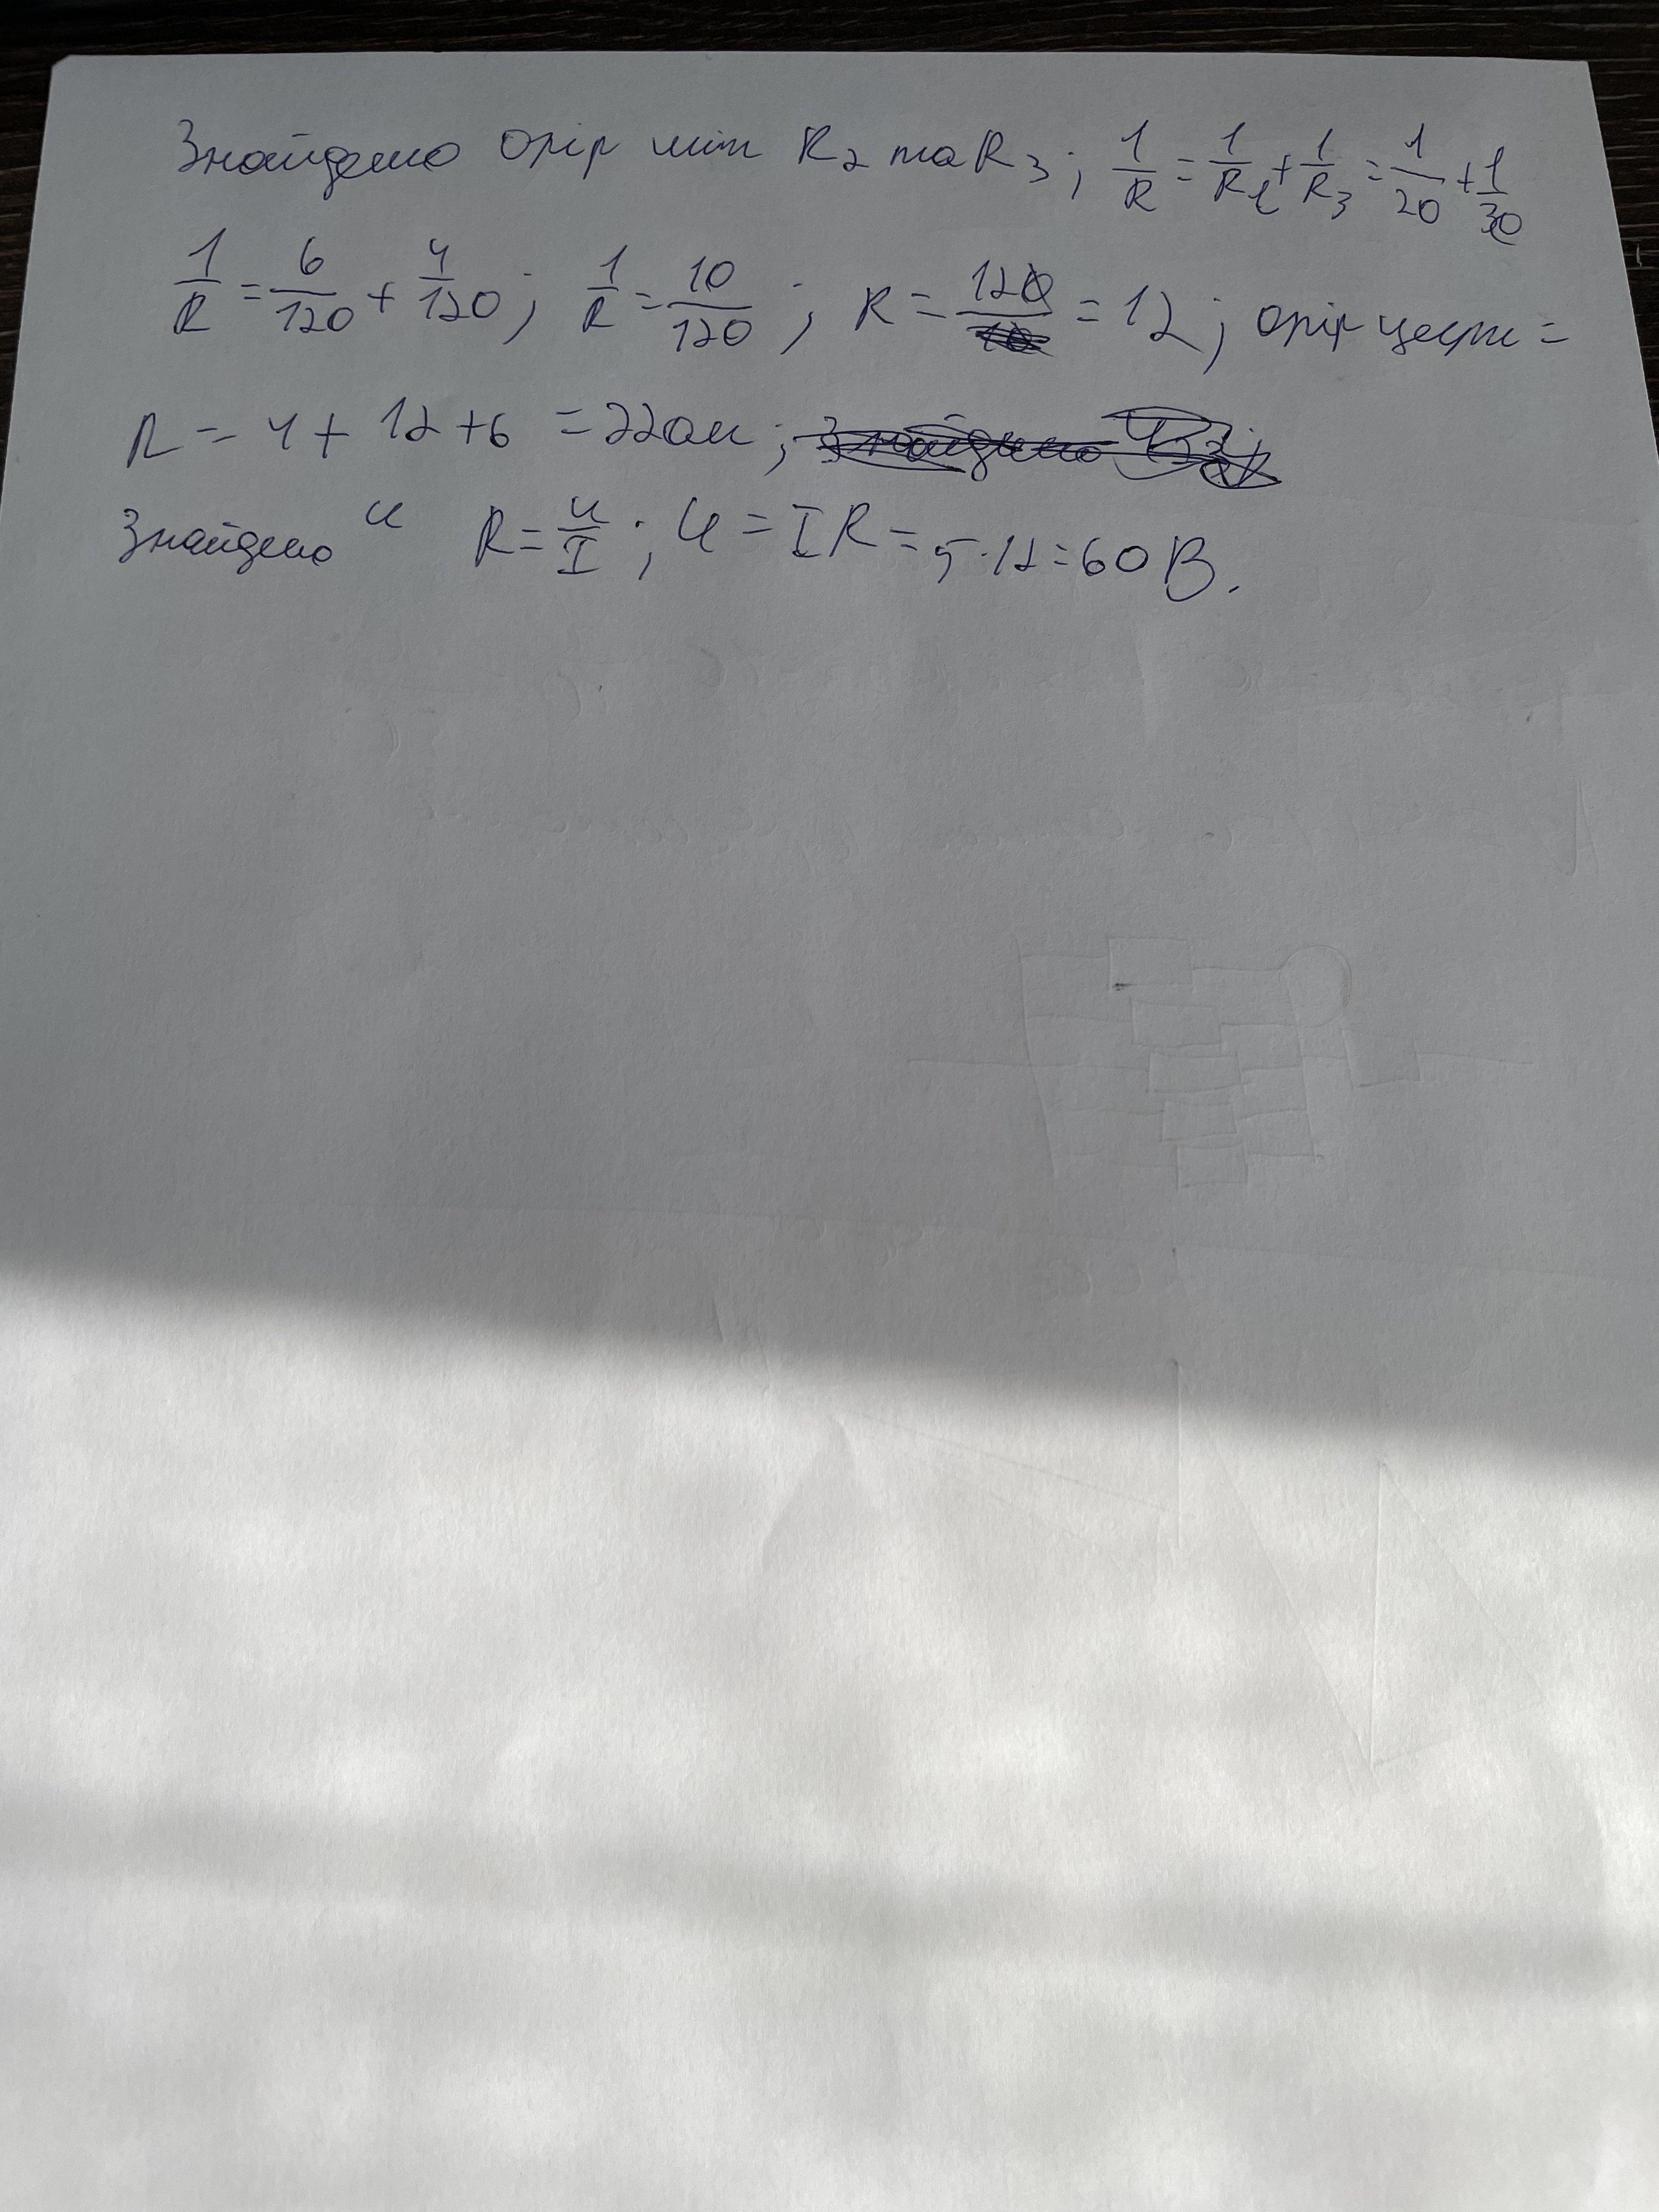 Знайдемо опір між R₂ та R₃; 1/R = 1/R₂ + 1/R₃ = 1/20 + 1/30
1/R = 6/120 + 4/120; 1/R = 10/120; R = 120/10 = 12; опір =
R = 4 + 12 + 6 = 22 Ом;
Знайдемо U R = U/I; U = IR = 5·12 = 60 В.